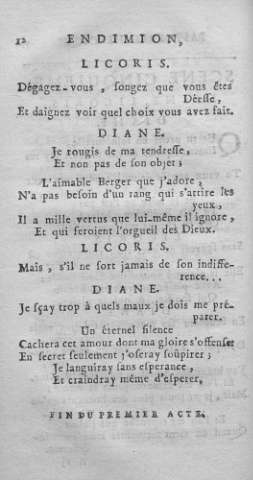 12 ENDIMION,
LICORIS.
Dégagez-vous, songez que vous êtes
Déesse,
Et daignez voir quel choix vous avez fait.
DIANE.
Je rougis de ma tendresse,
Et non pas de son objet;
L'aimable Berger que j'adore,
N'a pas besoin d'un rang qui s'attire les
yeux,
Il a mille vertus que lui-même il ignore,
Et qui feroient l'orgueil des Dieux.
LICORIS.
Mais, s'il ne sort jamais de son indiffe-
rence...
DIANE.
Je sçay trop à quels maux je dois me pré-
parer.
Un éternel silence
Cachera cet amour dont ma gloire s'offense
En secret seulement j'oseray soûpirer;
Je languiray sans esperance,
Et craindray même d'esperer,
FIN DU PREMIER ACTE.